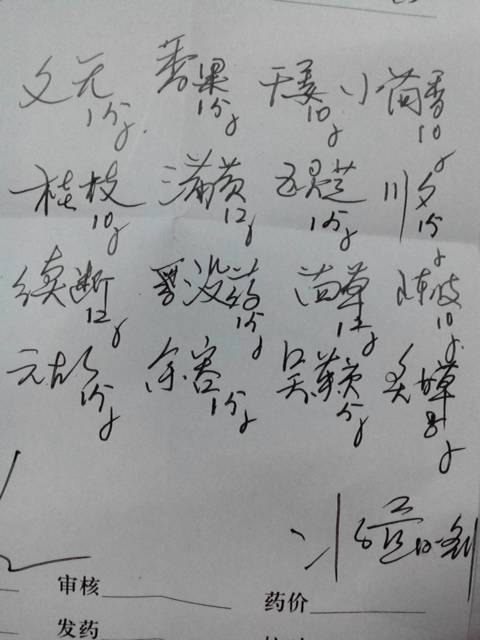 文元15g 香果15g 干姜10g 小茴香10g
桂枝10g 蒲黄12g 五灵芝15g 川夕15g
续断12g 没药15g 茜草12g 陈皮10g
元胡15g 余容15g 吴萸5g 炙草8g
审核
药价
发药